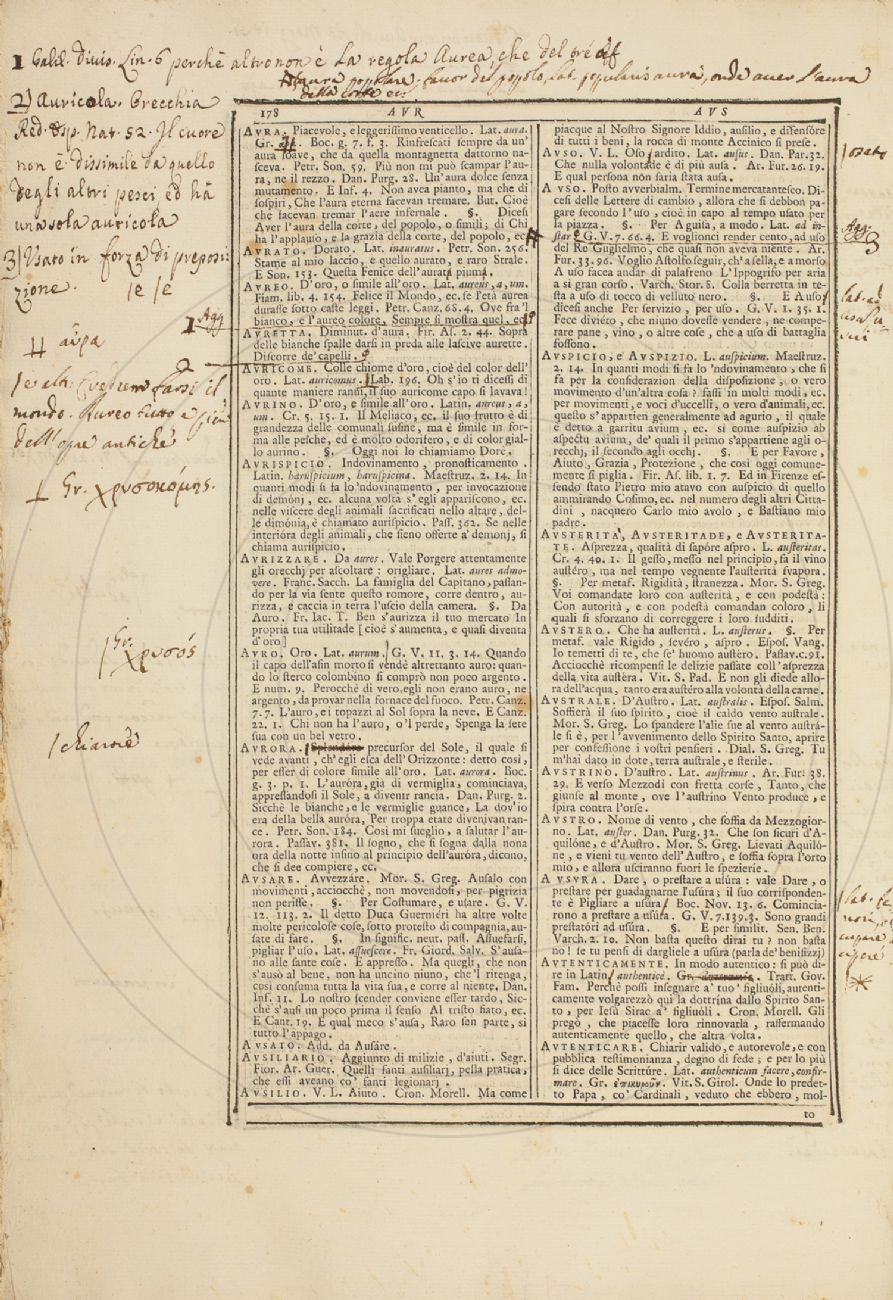 1 Galil. Divis. Lin. 6 perchè altro non è La regola Aurea, che del tré
Aura popolare. favor del popolo, Lat. popularis aura, onde aver l'aura
della corte ec.
2) Auricola. Orecchia
Red. Esp. Nat. 52. Il cuore
non è dissimile da quello
degli altri pesci ed hà
una sola auricola
3) Usato in forza di preposi
zione. se se
αὔρα
1 Agg
2
mondo Aureo tutto e pien
dell'opre antiche
Gr. χρυσοκόμης.
Gr.
χρυσός
chiarore
178 AVR
AVRA. Piacevole, e leggerissimo venticello. Lat. aura.
Gr. Boc. g. 7. f. 3. Rinfrescati sempre da un'
aura soave, che da quella montagnetta dattorno na-
sceva. Petr. Son. 59. Più non mi può scampar l'au-
ra, ne il rezzo. Dan. Purg. 28. Un'aura dolce senza
mutamento. E Inf. 4. Non avea pianto, ma che di
sospiri, Che l'aura eterna facevan tremare. But. Cioè
che facevan tremar l'aere infernale. §. Dicesi
Aver l'aura della corte, del popolo, o simili; di Chi
ha l'applauso, e la grazia della corte, del popolo, ec.
AVRATO. Dorato. Lat. inauratus. Petr. Son. 256.
Stame al mio laccio, e quello aurato, e raro Strale.
E Son. 153. Questa Fenice dell'aurata piuma.
AVREO. D'oro, o simile all'oro. Lat. aureus, a, um.
Fiam. lib. 4. 154. Felice il Mondo, ec. se l'età aurea
durasse sotto caste leggi. Petr. Canz. 68. 4. Ove fra'l
bianco, e l'aureo colore, Sempre si mostra quel, ec.
AVRETTA. Diminut. d'aura, Fir. As. 2. 44. Sopra
delle bianche spalle darsi in preda alle lascive aurette.
Discorre de' capelli.
AVRICOME. Colle chiome d'oro, cioè del color dell'
oro. Lat. auricomus. Lab. 196. Oh s'io ti dicessi di
quante maniere ranni, il suo auricome capo si lavava!
AVRINO. D'oro, e simile all'oro. Latin. aureus, a,
um. Cr. 5. 15. 1. Il Meliaco, ec. il suo frutto è di
grandezza delle comunali susine, ma è simile in for-
ma alle pesche, ed è molto odorifero, e di color gial-
lo aurino. §. Oggi noi lo chiamiamo Dorè.
AVRISPICIO. Indovinamento, pronosticamento.
Latin. haruspicium, haruspicina. Maestruz. 2. 14. In
quanti modi si fa lo 'ndovinamento, per invocazione
di demónj, ec. alcuna volta s' egli appariscono, ec.
nelle viscere degli animali sacrificati nello altare, del-
le dimónia, è chiamato aurispicio. Pass. 362. Se nelle
interióra degli animali, che sieno offerte a' demonj, si
chiama aurispicio.
AVRIZZARE. Da aures. Vale Porgere attentamente
gli orecchj per ascoltare: origliare. Lat. aures admo-
vere. Franc. Sacch. La famiglia del Capitano, passan-
do per la via sente questo romore, corre dentro, au-
rizza, e caccia in terra l'uscio della camera. §. Da
Auro. Fr. Iac. T. Ben s'aurizza il tuo mercato In
propria tua utilitade [cioè s'aumenta, e quasi diventa
d'oro]
AVRO. Oro. Lat. aurum. G. V. 11. 3. 14. Quando
il capo dell'asin morto si vendè altrettanto auro: quan-
do lo sterco colombino si comprò non poco argento.
E num. 9. Perocchè di vero egli non erano auro, ne
argento, da provar nella fornace del fuoco. Petr. Canz.
7. 7. L'auro, e i topazzi al Sol sopra la neve. E Canz.
22. 1. Chi non ha l'auro, o'l perde, Spenga la sete
sua con un bel vetro.
AVRORA. Splendore precursor del Sole, il quale si
vede avanti, ch'egli esca dell'Orizzonte: detto così,
per esser di colore simile all'oro. Lat. aurora. Boc.
g. 3. p. 1. L'auróra, già di vermiglia, cominciava,
appressandosi il Sole, a divenir rancia. Dan. Purg. 2.
Sicchè le bianche, e le vermiglie guance, La dov'io
era della bella auróra, Per troppa etate divenivan ran-
ce. Petr. Son. 184. Così mi sueglio, a salutar l'au-
rora. Passav. 381. Il sogno, che si sogna dalla nona
ora della notte insino al principio dell'auróra, dicono,
che si dee compiere, ec.
AVSARE. Avvezzáre. Mor. S. Greg. Ausalo con
movimenti, acciocchè, non movendosi, per pigrizia
non perisse. §. Per Costumare, e usare. G. V.
12. 113. 2. Il detto Duca Guerniéri ha altre volte
molte pericolose cose, sotto protesto di compagnia, au-
sate di fare. §. In signific. neut. pass. Assuefarsi,
pigliar l'uso. Lat. assuescere. Fr. Giord. Salv. S'ausa-
no alle sante cose. E appresso. Ma quegli, che non
s'ausò al bene, non ha uncino niuno, che 'l ritenga,
così consuma tutta la vita sua, e corre al niente. Dan.
Inf. 11. Lo nostro scender conviene esser tardo, Sic-
chè s'ausi un poco prima il senso Al tristo fiato, ec.
E Cant. 19. E qual meco s'ausa, Raro sen parte, si
tutto l'appago.
AVSATO. Add. da Ausáre.
AVSILIARIO. Aggiunto di milizie, d'aiuti. Segr.
Fior. Ar. Guer. Quelli fanti ausiliarj, nella pratica,
che essi aveano co' fanti legionarj.
AVSILIO. V. L. Aiuto. Cron. Morell. Ma come
AVS
piacque al Nostro Signore Iddio, ausilio, e difensóre
di tutti i beni, la rocca di monte Accinico si prese.
AVSO. V. L. Oso, ardito. Lat. ausus. Dan. Par. 32.
Che nulla volontade è di più ausa. Ar. Fur. 26. 19.
E qual persona non saria stata ausa.
AVSO. Posto avverbialm. Termine mercatantesco. Di-
cesi delle Lettere di cambio, allora che si debbon pa-
gare secondo l'uso, cioè in capo al tempo usato per
la piazza. §. Per A guisa, a modo. Lat. ad in-
star. G. V. 7. 66. 4. E voglionci render cento, ad uso
del Re Guglielmo, che quasi non aveva niente. Ar.
Fur. 33. 96. Voglio Astolfo seguir, ch'a sella, e a morso
A uso facea andar di palafreno L'Ippogrifo per aria
a sì gran corso. Varch. Stor. 8. Colla berretta in te-
sta a uso di tocco di velluto nero. §. E A uso
dicesi anche Per servizio, per uso. G. V. 1. 35. 1.
Fece diviéto, che niuno dovesse vendere, ne compe-
rare pane, vino, o altre cose, che a uso di battaglia
fossono.
AVSPICIO, e AVSPIZIO. L. auspicium. Maestruz.
2. 14. In quanti modi si fa lo 'ndovinamento, che si
fa per la considerazion della disposizione, o vero
movimento d'un'altra cosa? fassi in molti modi, ec.
per movimenti, e voci d'uccelli, o vero d'animali, ec.
questo s'appartien generalmente ad agurio, il quale
è detto a garritu avium, ec. sì come auspizio ab
aspectu avium, de' quali il primo s'appartiene agli o-
recchj, il secondo agli occhj. §. E per Favore,
Aiuto, Grazia, Protezione, che così oggi comune-
mente si piglia. Fir. As. lib. 1. 7. Ed in Firenze es-
sendo stato Pietro mio atavo con auspicio di quello
ammirando Cosimo, ec. nel numero degli altri Citta-
dini, nacquero Carlo mio avolo, e Bastiano mio
padre.
AVSTERITÀ, AVSTERITADE, e AVSTERITA-
TE. Asprezza, qualità di sapóre aspro. L. austeritas.
Cr. 4. 40. 1. Il gesso, messo nel principio, fa il vino
austéro, ma nel tempo vegnente l'austerità svapora.
§. Per metaf. Rigidità, stranezza. Mor. S. Greg.
Voi comandate loro con austerità, e con podestà:
Con autorità, e con podestà comandan coloro, li
quali si sforzano di correggere i loro sudditi.
AVSTERO. Che ha austerità. L. austerus. §. Per
metaf. vale Rigido, sevéro, aspro. Espos. Vang.
Io temetti di te, che se' huomo austéro. Passav. c. 91.
Acciocchè ricompensi le delizie passate coll'asprezza
della vita austéra. Vit. S. Pad. E non gli diede allo-
ra dell'acqua, tanto era austéro alla volontà della carne.
AVSTRALE. D'Austro. Lat. australis. Espos. Salm.
Soffierà il suo spirito, cioè il caldo vento australe.
Mor. S. Greg. Lo spandere l'alie sue al vento austrá-
le si è, per l'avvenimento dello Spirito Santo, aprire
per confessione i vostri pensieri. Dial. S. Greg. Tu
m'hai dato in dote, terra australe, e sterile.
AVSTRINO. D'austro. Lat. austrinus. Ar. Fur. 38.
29. E verso Mezzodì con fretta corse, Tanto, che
giunse al monte, ove l'austrino Vento produce, e
spira contra l'orse.
AVSTRO. Nome di vento, che soffia da Mezzogior-
no. Lat. auster. Dan. Purg. 32. Che son sicuri d'A-
quilóne, e d'Austro. Mor. S. Greg. Lievati Aquiló-
ne, e vieni tu vento dell'Austro, e soffia sopra l'orto
mio, e allora usciranno fuori le spezierie.
A VSVRA. Dare, o prestare a usúra: vale Dare, o
prestare per guadagnarne l'usúra; il suo corrisponden-
te è Pigliare a usúra. Boc. Nov. 13. 6. Comincia-
rono a prestare a usúra. G. V. 7. 139. 3. Sono grandi
prestatóri ad usúra. §. E per similit. Sen. Ben.
Varch. 2. 10. Non basta questo dirai tu? non basta
no! se tu pensi di dargliele a usúra (parla de' benifizzj)
AVTENTICAMENTE. In modo autentico: si può di-
re in Latin. authenticè. Gr. Tratt. Gov.
Fam. Perchè possi insegnare a' tuo' figliuóli, autenti-
camente volgarezzò qui la dottrina dallo Spirito San-
to, per Iesù Sirac a' figliuóli. Cron. Morell. Gli
pregò, che piacesse loro rinnovarla, raffermando
autenticamente quello, che altra volta.
AVTENTICARE. Chiarir valido, e autorevole, e con
pubblica testimonianza, degno di fede; e per lo più
si dice delle Scritture. Lat. authenticum facere, confir-
mare. Gr. ἐπικυροῦν. Vit. S. Girol. Onde lo predet-
to Papa, co' Cardinali, veduto che ebbero, mol-
to
Agg.
3